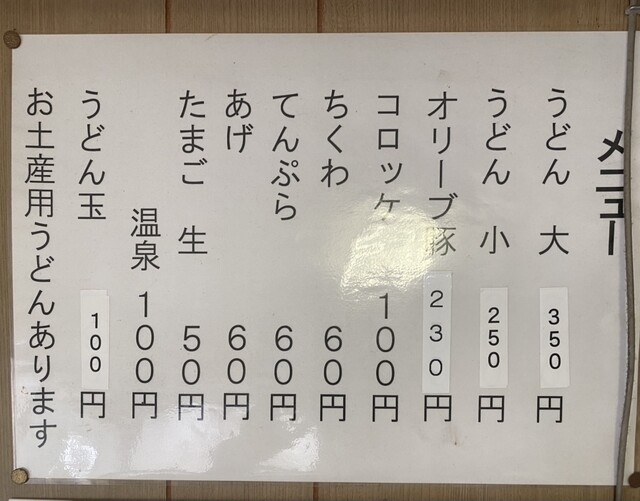 メニュー
うどん 大 350円
うどん 小 250円
オリーブ豚 230円
コロッケ 100円
ちくわ 60円
てんぷら 60円
あげ 60円
たまご 生 50円
温泉 100円
うどん玉 100円
お土産用うどんあります